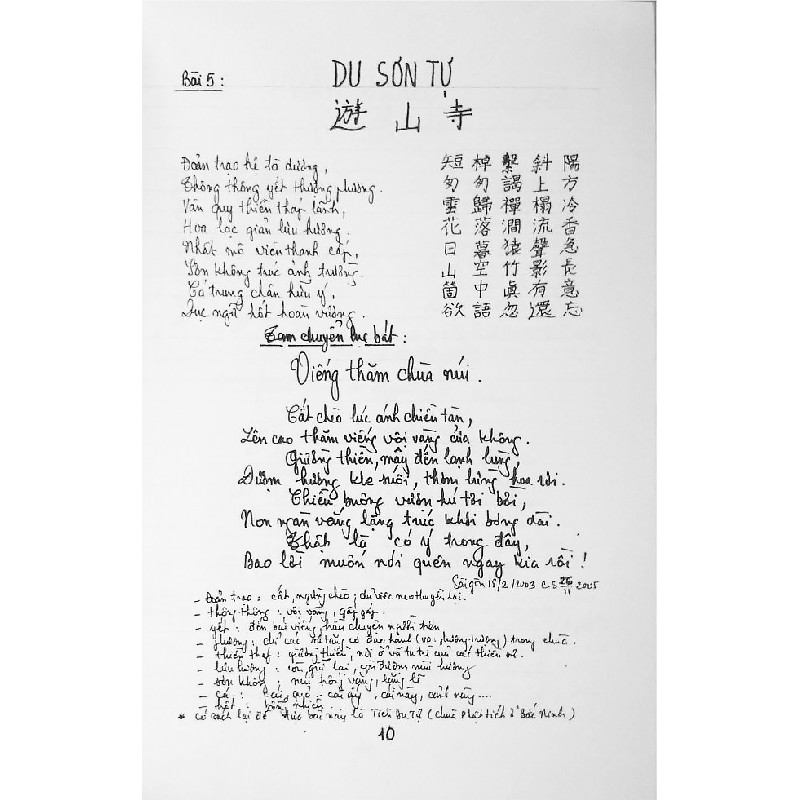 Bài 5:
DU SƠN TỰ
遊山寺
Đoản trạo hệ tà dương,
Thông thông yết thượng phương.
Vân quy thiền tháp lãnh,
Hoa lạc giản lưu hương.
Nhật mộ viên thanh cấp,
Sơn không trúc ảnh trường.
Cá trung chân hữu ý,
Dục ngữ hốt hoàn vương.
短棹繫斜陽
匆匆謁上方
雲歸禪榻冷
花落澗流香
日暮猿聲急
山空竹影長
箇中眞有意
欲語忽還忘
Tạm chuyển lục bát:
Viếng thăm chùa núi.
Cất chèo lúc ánh chiều tàn,
Lên cao thăm viếng vội vàng cửa không.
Giường thiền, mây đến lạnh lùng,
Đượm hương khe suối, thơm lừng hoa rơi.
Chiều buông vượn hú tơi bời,
Non ngàn vắng lặng trúc khơi bóng dài.
Thật là có ý trong đây,
Bao lời muốn nói quên ngay kia rồi!
Sàigòn 15/2/2003 2005
- Đoản trạo: cất, ngưng chèo;
- thông thông: vội vàng, gấp gáp.
- yết: đến
- phương: trong chùa.
- thiền tháp: giường thiền, nơi
- lưu hương: còn giữ lại,
- sơn không: núi trống vắng, lặng lẽ
- cá: cái ấy, cái này,
- hốt: bỗng nhiên
* Có sách lại đề bài này là Tiên Du Tự (chùa Phật tích ở Bắc Ninh)
10